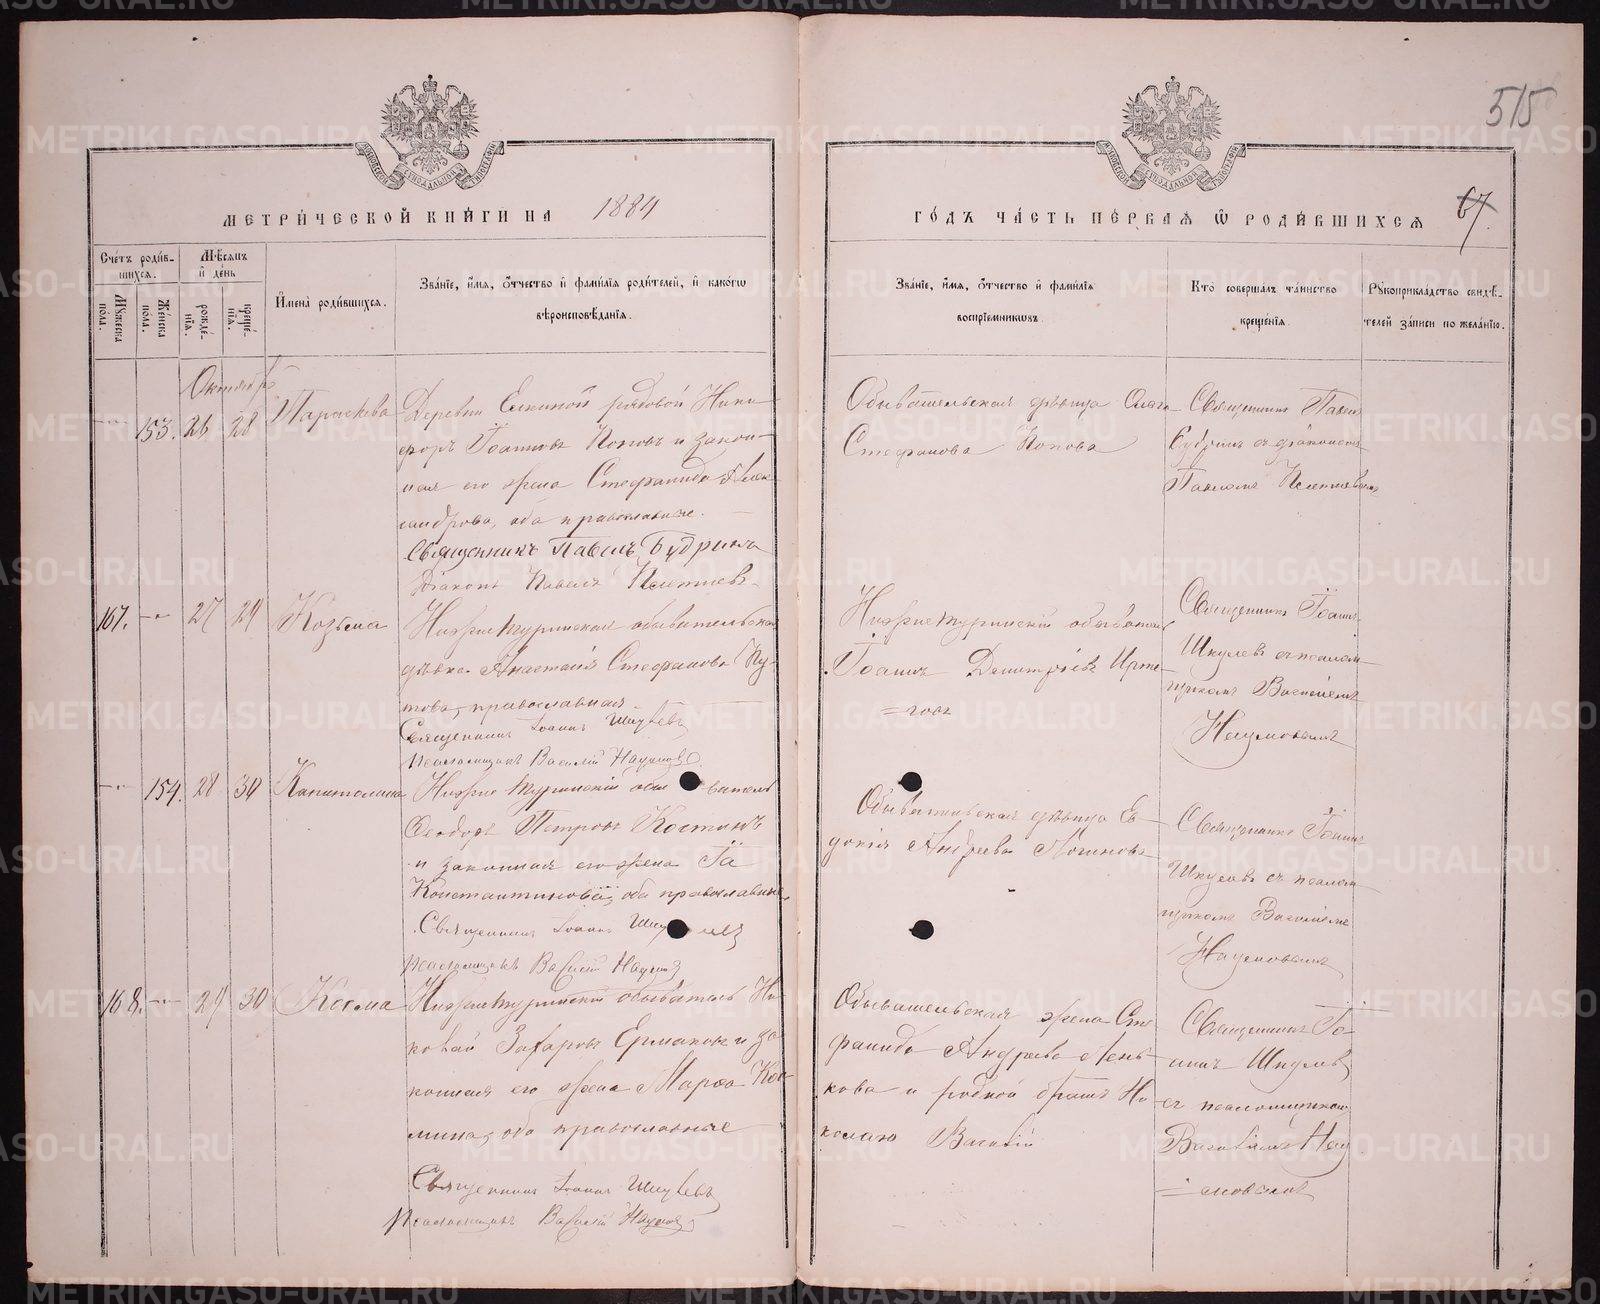 515
МЕТРИ́ЧЕСКОЙ КНИ́ГИ НА 1884
ГО́ДЪ ЧА́СТЬ ПЕ́РВАѦ Ѿ РОДИ́ВШИХСѦ 67.
Сче́тъ роди́в-
шихсѧ.
Мꙋ́жеска
по́ла.
Же́нска
по́ла.
Мѣ́сѧцъ
и҆ де́нь
рожде́-
нїѧ.
креще́-
нїѧ.
И҆мена̀ роди́вшихсѧ.
Зва́нїе, и҆́мѧ, о҆́тчество и҆ фами́лїѧ роди́телей, и҆ како́гѡ
вѣроисповѣ́данїѧ.
Зва́нїе, и҆́мѧ, о҆́тчество и҆ фами́лїѧ
воспрїе́мникѡвъ.
Кто̀ соверша́лъ та́инство
креще́нїѧ.
Рꙋкоприкла́дство свидѣ́-
телей за́писи по жела́нїю.
Октябрь
153. 26 28 Параскева
Деревни Елкиной рядовой Ники-
форъ Іоанновъ Поповъ и закон-
ная его жена Стефанида Алек-
сандрова, оба православные.
Священникъ Павелъ Будринъ
Діаконъ Павелъ
Обывательская дѣвица Ольга
Стефанова Попова
Священникъ Павелъ
Будринъ съ діакономъ
Павломъ
167. 27 29 Козьма
Нижнетуринская обывательская
дѣвка Анастасія Стефанова Пу-
това, православная.
Священникъ Іоаннъ Шкулевъ
Псаломщикъ Василій Наумовъ.
Нижнетуринскій обыватель
Іоаннъ Димитріевъ
Священникъ Іоаннъ
Шкулевъ съ псалом-
щикомъ Василіемъ
Наумовымъ
154. 28 30 Капитолина
Нижнетуринскій обыватель
Ѳеодоръ Петровъ Костинъ
и законная его жена
Константинова, оба православные.
Священникъ Іоаннъ
Псаломщикъ Василій Наумовъ
Обывательская дѣвица Ев-
докія Андреева Логинова
Священникъ Іоаннъ
Шкулевъ съ псалом-
щикомъ Василіемъ
Наумовымъ
168. 29 30 Косма
Нижнетуринскій обыватель Ни-
колай Захаровъ Ермаковъ и за-
конная его жена Марѳа Коз-
мина, оба православные
Священникъ Іоаннъ Шкулевъ
Псаломщикъ Василій Наумовъ
Обывательская жена Сте-
фанида Андреева
кова и родной братъ Ни-
колаю Василій
Священникъ Іо-
аннъ Шкулевъ
съ псаломщикомъ
Василіемъ Нау-
= мовымъ
METRIKI.GASO-URAL.RU